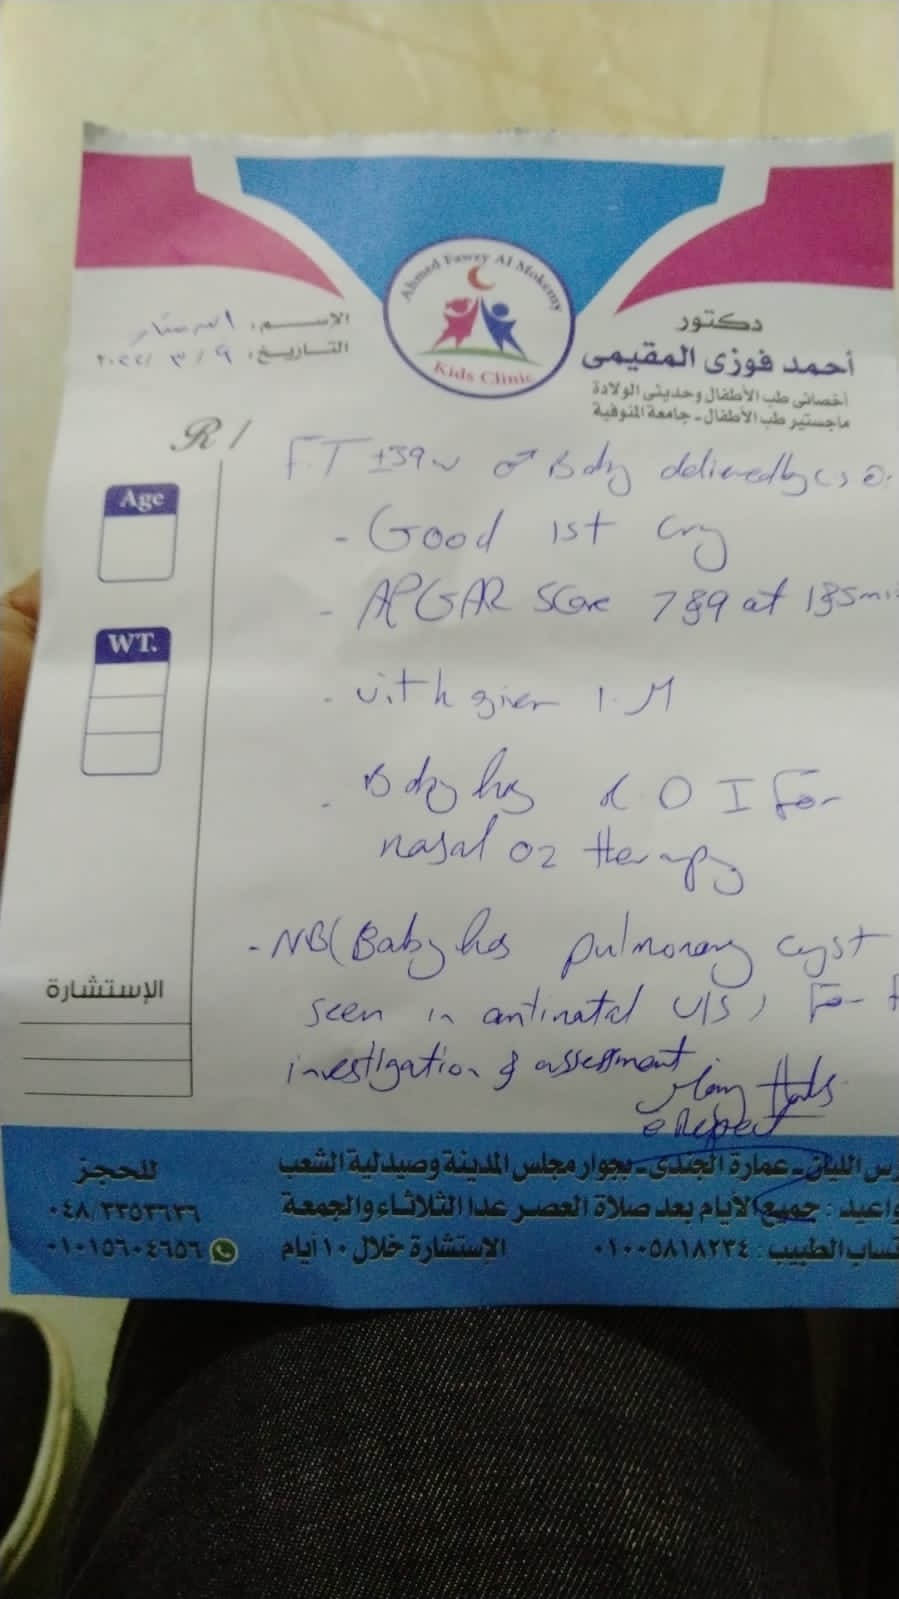 Ahmed Fawzy Al Mokemy
Kids Clinic
دكتور
أحمد فوزى المقيمى
أخصائى طب الأطفال وحديثى الولادة
ماجستير طب الأطفال - جامعة المنوفية
الإســم:
التـاريـخ: ٩ / ٣ / ٢٠٢٢
R /
Age
WT.
الإستشارة
F.T ±39w ♂ Baby delivered by CS
- Good 1st cry
- APGAR Score 7&9 at 1&5 min
- vit k given I.M
. Baby has R D I For
nasal O2 therapy
- NB (Baby has pulmonary cyst
seen in antinatal U/S) For
investigation & assessment
Many thanks
& Respect
الليان - عمارة الجندى - بجوار مجلس المدينة وصيدلية الشعب
جميع الأيام بعد صلاة العصر عدا الثلاثاء والجمعة
الطبيب: ٠١٠٠٥٨١٨٢٣٤
الإستشارة خلال ١٠ أيام
للحجز
٠٤٨/٣٣٥٣٦٣٦
٠١٠١٥٦٠٤٦٥٦